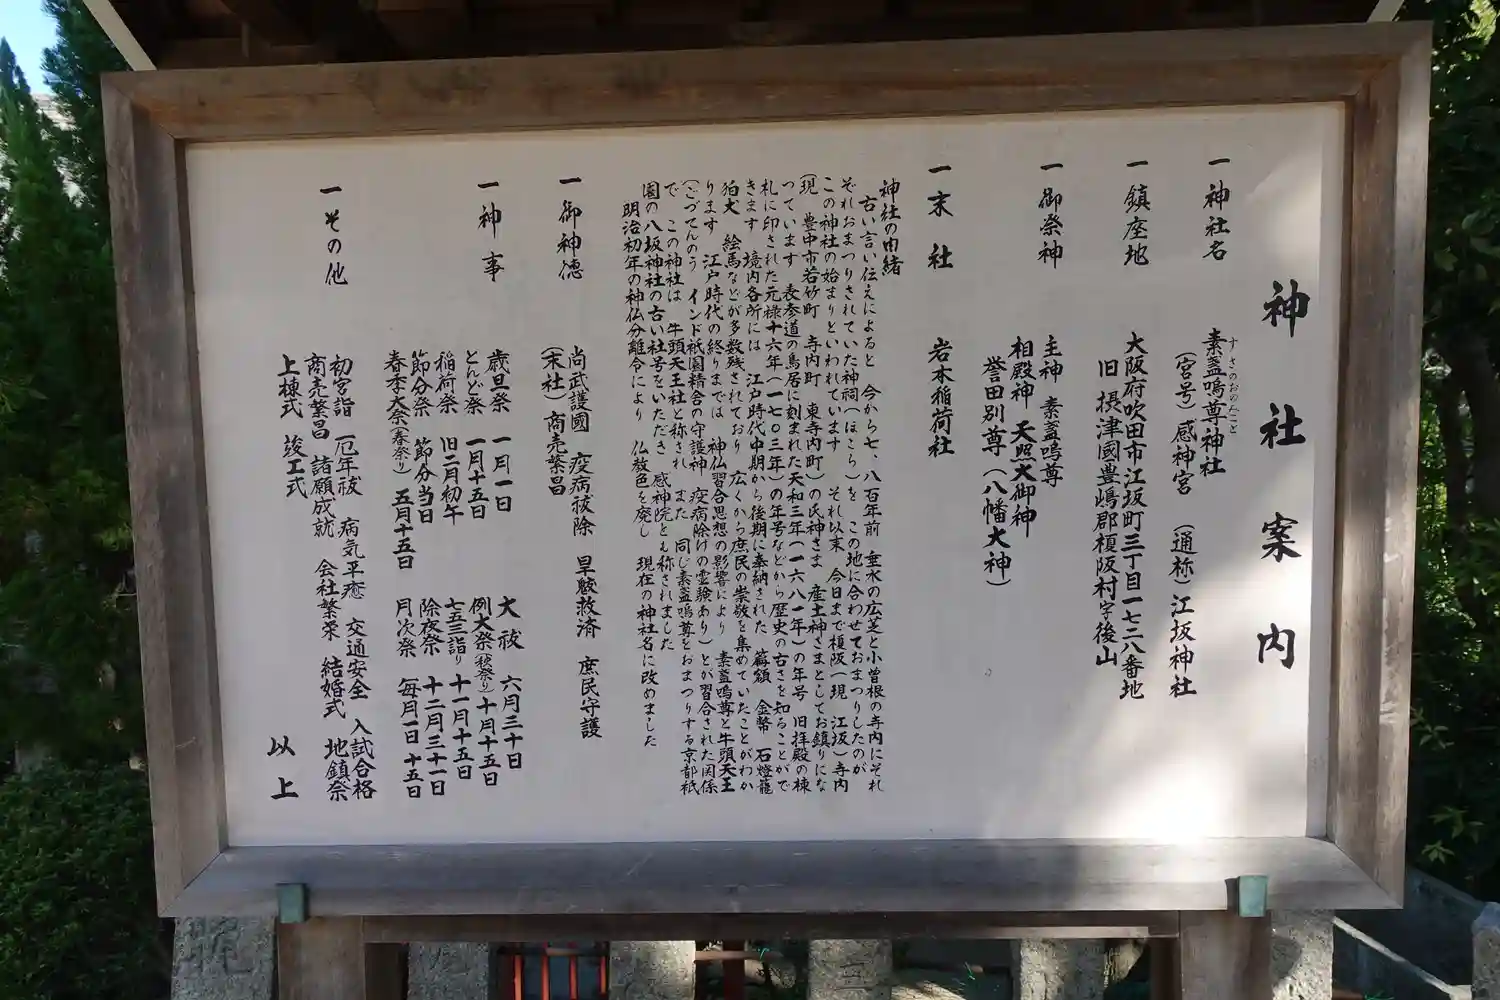 神社案内
一 神社名 素盞嗚尊神社
すさのおのみこと
(宮号)感神宮 (通称)江坂神社
一 鎮座地 大阪府吹田市江坂町三丁目一七二八番地
旧 摂津國豊嶋郡榎阪村字後山
一 御祭神 主神 素盞嗚尊
相殿神 天照大御神
誉田別尊(八幡大神)
一 末社 岩本稲荷社
神社の由緒
古い言い伝えによると 今から七、八百年前 垂水の広芝と小曽根の寺内にそれ
ぞれおまつりされていた神祠(ほこら)を、この地に合わせておまつりしたのが
この神社の始まりといわれています それ以来 今日まで榎阪(現 江坂)寺内
(現 豊中市若竹町 寺内町 東寺内町)の氏神さま 産土神さまとしてお鎮りにな
っています 表参道の鳥居に刻まれた天和三年(一六八一年)の年号 旧拝殿の棟
札に印された元禄十六年(一七〇三年)の年号などから歴史の古さを知ることがで
きます 境内各所には 江戸時代中期から後期に奉納された 扁額 金幣 石燈籠
狛犬 絵馬などが多数残されており 広くから庶民の崇敬を集めていたことがわか
ります 江戸時代の終りまでは 神仏習合思想の影響により 素盞嗚尊と牛頭天王
(ごづてんのう インド祇園精舎の守護神 疫病除けの霊験あり)とが習合された関係
で この神社は 牛頭天王社と称され また 同じ素盞嗚尊をおまつりする京都祇
園の八坂神社の古い社号をいただき 感神院とも称されました
明治初年の神仏分離令により 仏教色を廃し 現在の神社名に改めました
一 御神徳 尚武護國 疫病祓除 旱魃救済 庶民守護
(末社)商売繁昌
一 神事 歳旦祭 一月一日 大祓 六月三十日
とんど祭 一月十五日 例大祭(秋祭り)十月十五日
稲荷祭 旧二月初午 七五三詣り 十一月十五日
節分祭 節分当日 除夜祭 十二月三十一日
春季大祭(春祭り) 五月十五日 月次祭 毎月一日 十五日
一 その他 初宮詣 厄年祓 病気平癒 交通安全 入試合格
商売繁昌 諸願成就 会社繁栄 結婚式 地鎮祭
上棟式 竣工式
以上